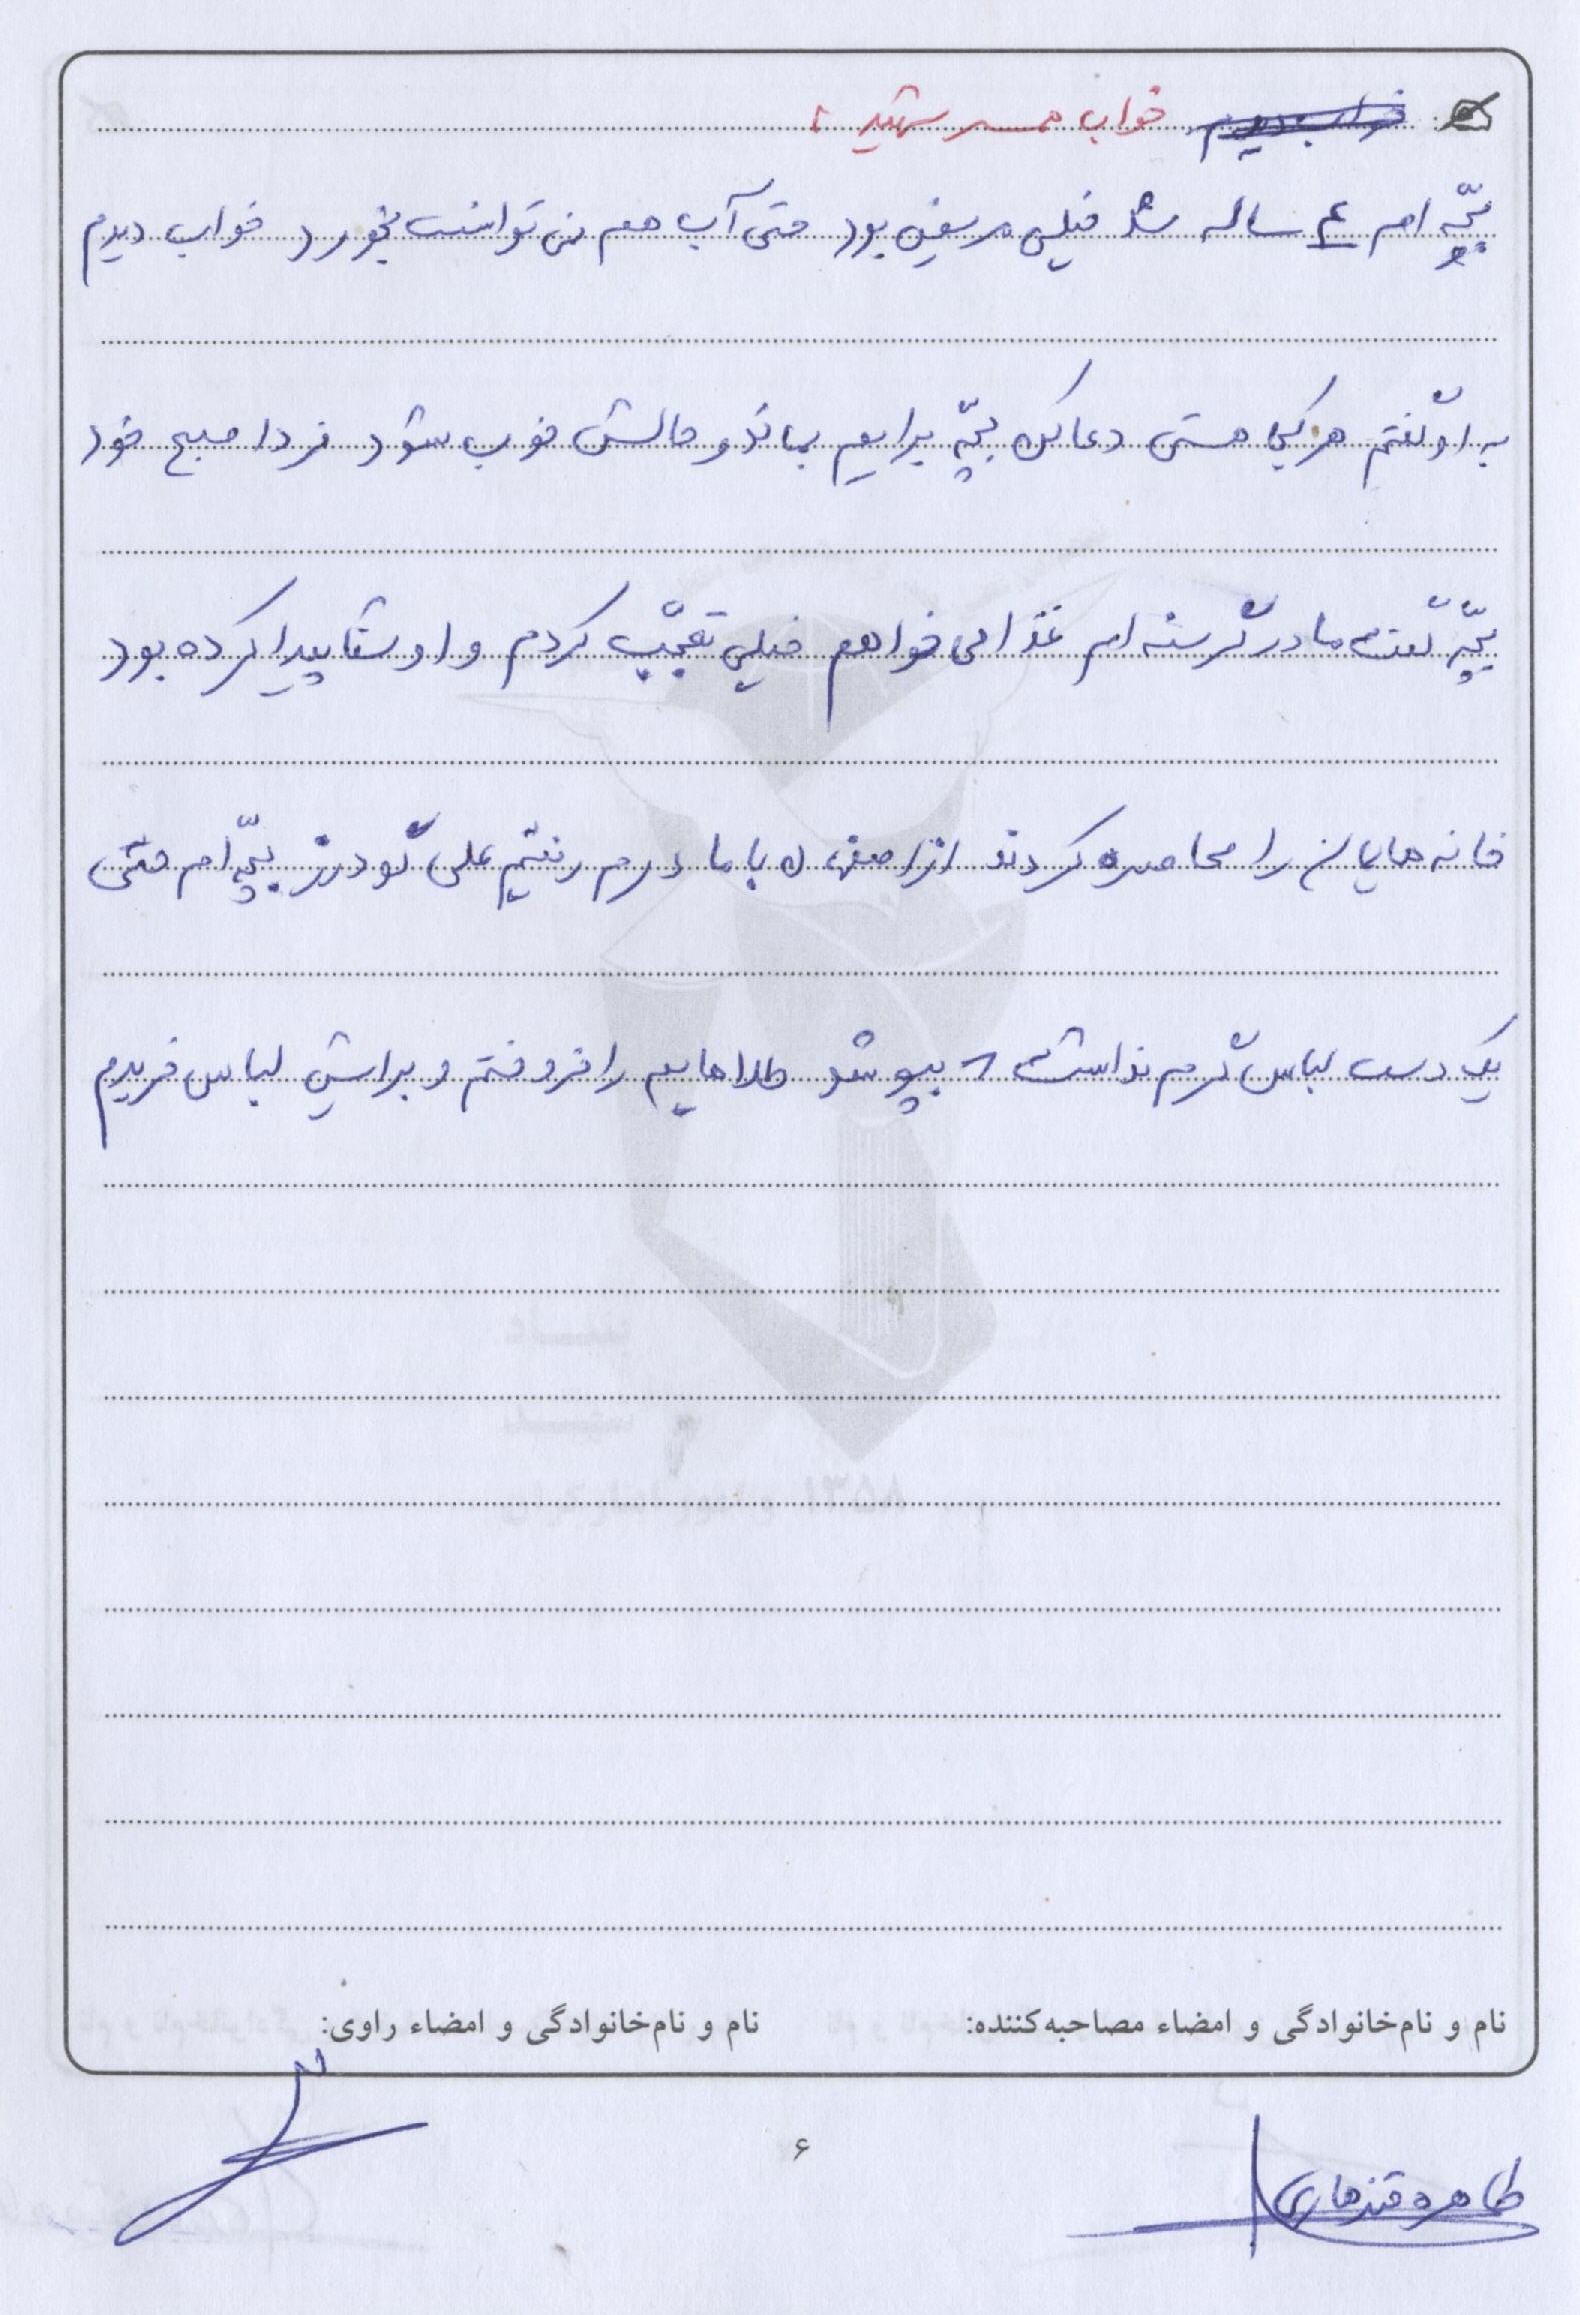 خواب دیدم خواب همسر شهید:
بچّه ام ٤ ساله شد خیلی مریض بود حتی آب هم نمی توانست بخورد خواب دیدم
به او گفتم هر کجا هستی دعا کن بچّه برایم بماند و حالش خوب شود فردا صبح خود
بچّه گفت مادر گرسنه ام غذا می خواهم خیلی تعجّب کردم و او شفا پیدا کرده بود
خانه هایمان را محاصره کردند از اصفهان با مادرم رفتیم علی گودرز بچّه ام حتی
یک دست لباس گرم نداشت که بپوشد طلاهایم را فروختم و برایش لباس خریدم
نام و نام‌خانوادگی و امضاء مصاحبه‌کننده: نام و نام‌خانوادگی و امضاء راوی:
۶
طاهره قندهاری